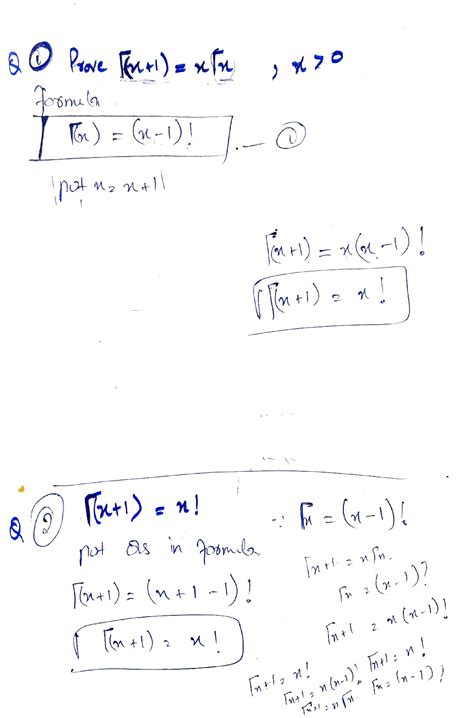 Q ① Prove Γ(x+1) = xΓx , x>0
Formula
Γ(x) = (x-1)! — ①
put x = x+1
Γ(x+1) = x(x-1)!
Γ(x+1) = x!
Q ② Γ(x+1) = x!
∵ Γx = (x-1)!
put Qs in formula
Γ(x+1) = (x+1-1)!
Γ(x+1) = x!
Γx+1 = xΓx.
Γx = (x-1)!
Γx+1 = x(x-1)!
Γx+1 = x!
Γx+1 = x!
Γx+1 = x(x-1)!
Γx+1 = xΓx.
Γx = (x-1)!